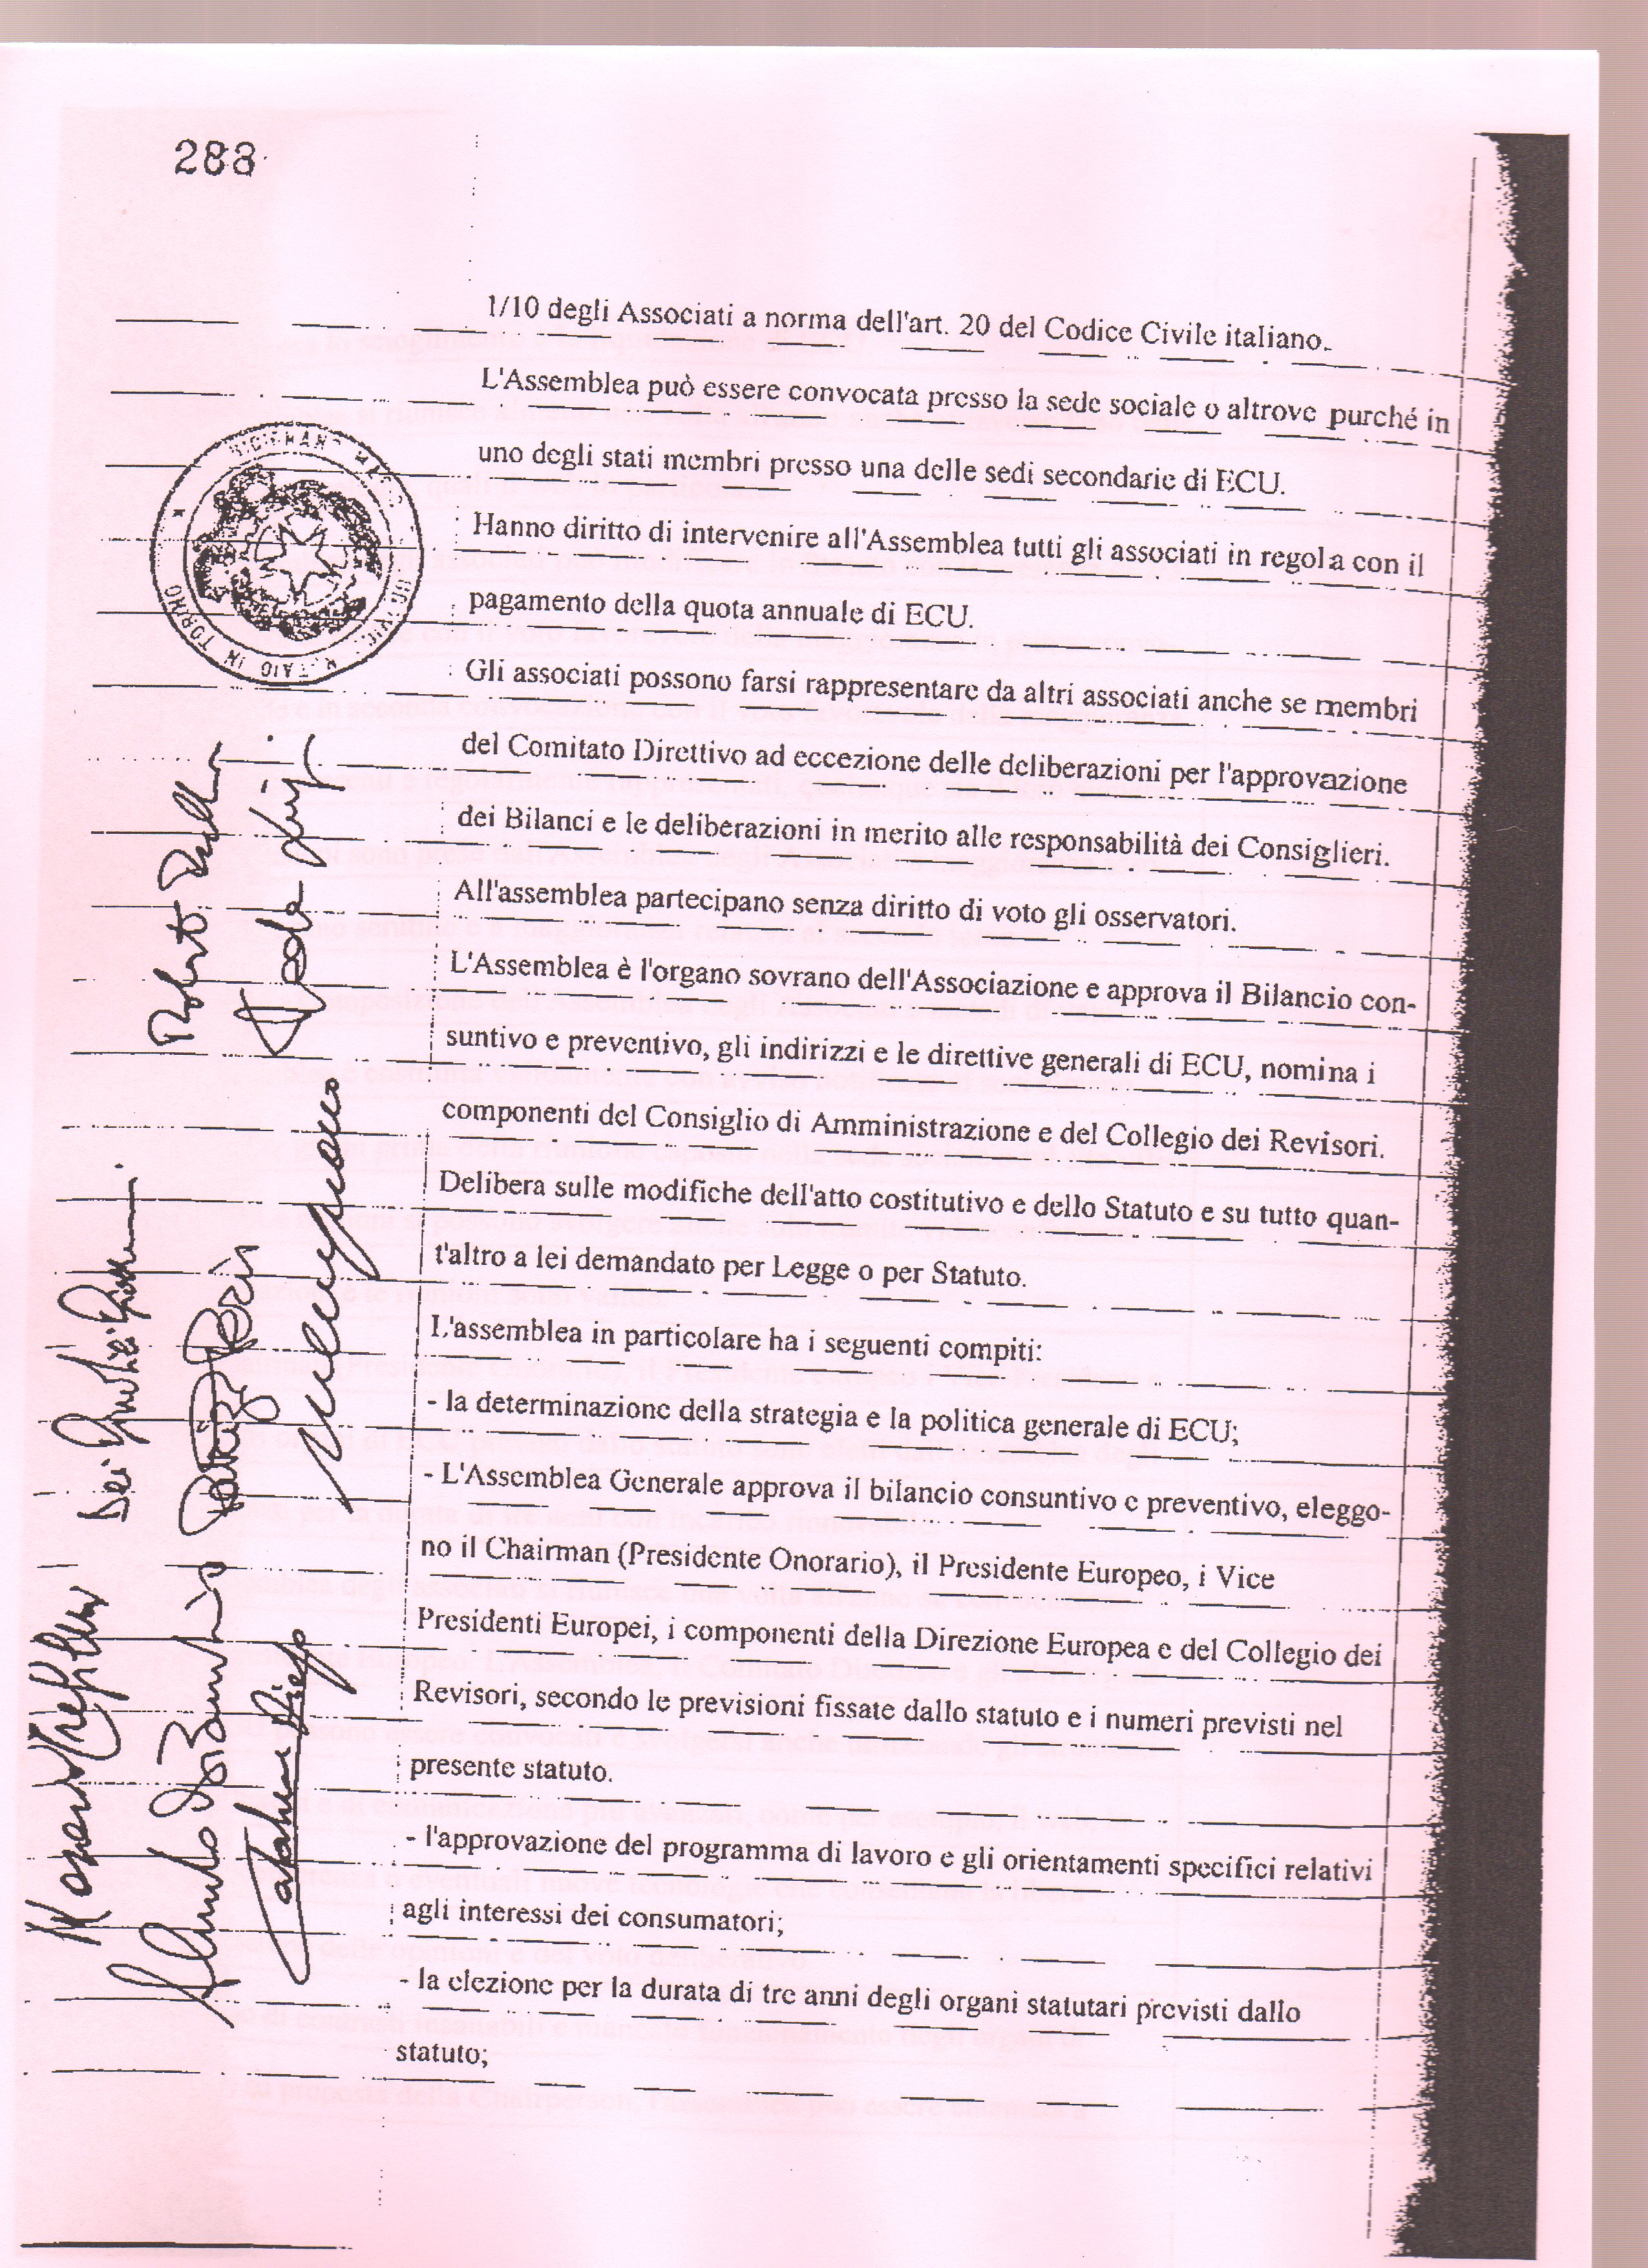 288
1/10 degli Associati a norma dell'art. 20 del Codice Civile italiano.
L'Assemblea può essere convocata presso la sede sociale o altrove purché in
uno degli stati membri presso una delle sedi secondarie di ECU.
Hanno diritto di intervenire all'Assemblea tutti gli associati in regola con il
pagamento della quota annuale di ECU.
Gli associati possono farsi rappresentare da altri associati anche se membri
del Comitato Direttivo ad eccezione delle deliberazioni per l'approvazione
dei Bilanci e le deliberazioni in merito alle responsabilità dei Consiglieri.
All'assemblea partecipano senza diritto di voto gli osservatori.
L'Assemblea è l'organo sovrano dell'Associazione e approva il Bilancio con-
suntivo e preventivo, gli indirizzi e le direttive generali di ECU, nomina i
componenti del Consiglio di Amministrazione e del Collegio dei Revisori.
Delibera sulle modifiche dell'atto costitutivo e dello Statuto e su tutto quan-
t'altro a lei demandato per Legge o per Statuto.
L'assemblea in particolare ha i seguenti compiti:
- la determinazione della strategia e la politica generale di ECU;
- L'Assemblea Generale approva il bilancio consuntivo e preventivo, eleggo-
no il Chairman (Presidente Onorario), il Presidente Europeo, i Vice
Presidenti Europei, i componenti della Direzione Europea e del Collegio dei
Revisori, secondo le previsioni fissate dallo statuto e i numeri previsti nel
presente statuto.
- l'approvazione del programma di lavoro e gli orientamenti specifici relativi
agli interessi dei consumatori;
- la elezione per la durata di tre anni degli organi statutari previsti dallo
statuto;
IN TORINO
Roberto